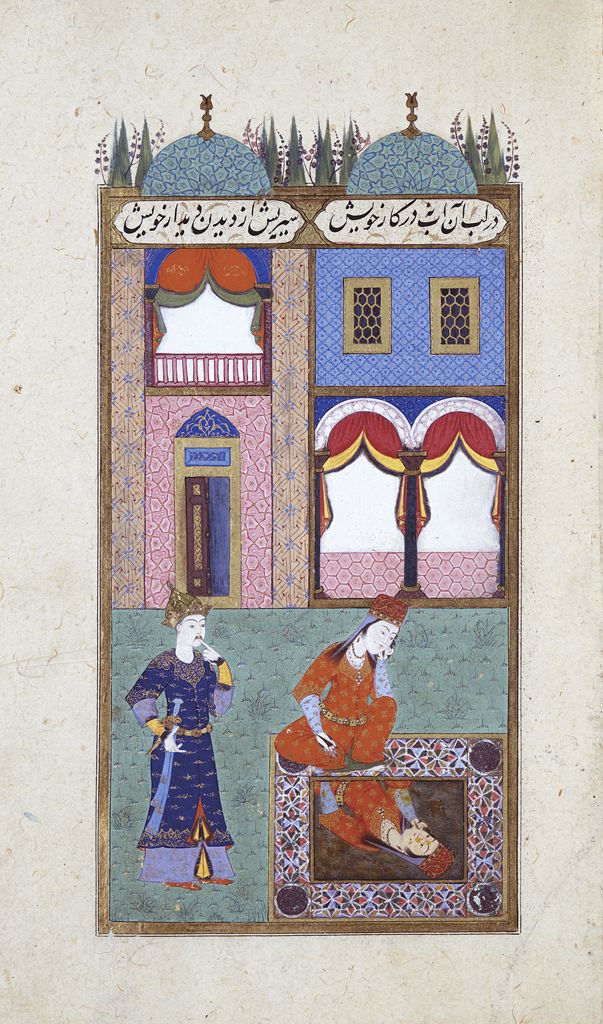 در لب آن آب در کار خویش
سیریش از دیدن دیدار خویش